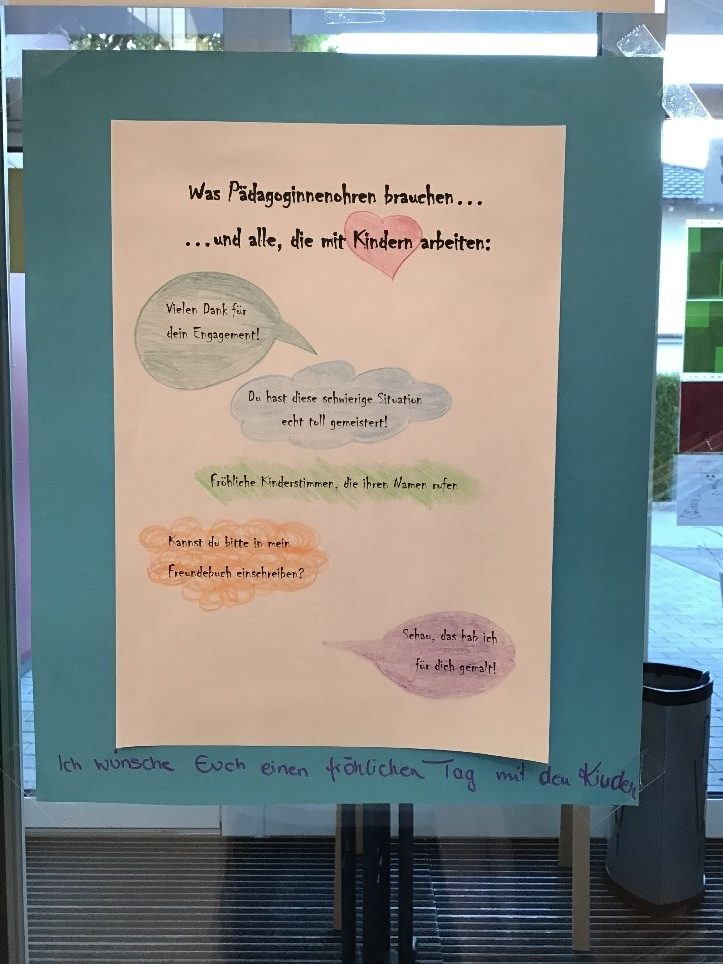 Was Pädagoginnenohren brauchen...
...und alle, die mit Kindern arbeiten:
Vielen Dank für
dein Engagement!
Du hast diese schwierige Situation
echt toll gemeistert!
Fröhliche Kinderstimmen, die ihren Namen rufen
Kannst du bitte in mein
Freundebuch einschreiben?
Schau, das hab ich
für dich gemalt!
Ich wünsche Euch einen fröhlichen Tag mit den Kinder